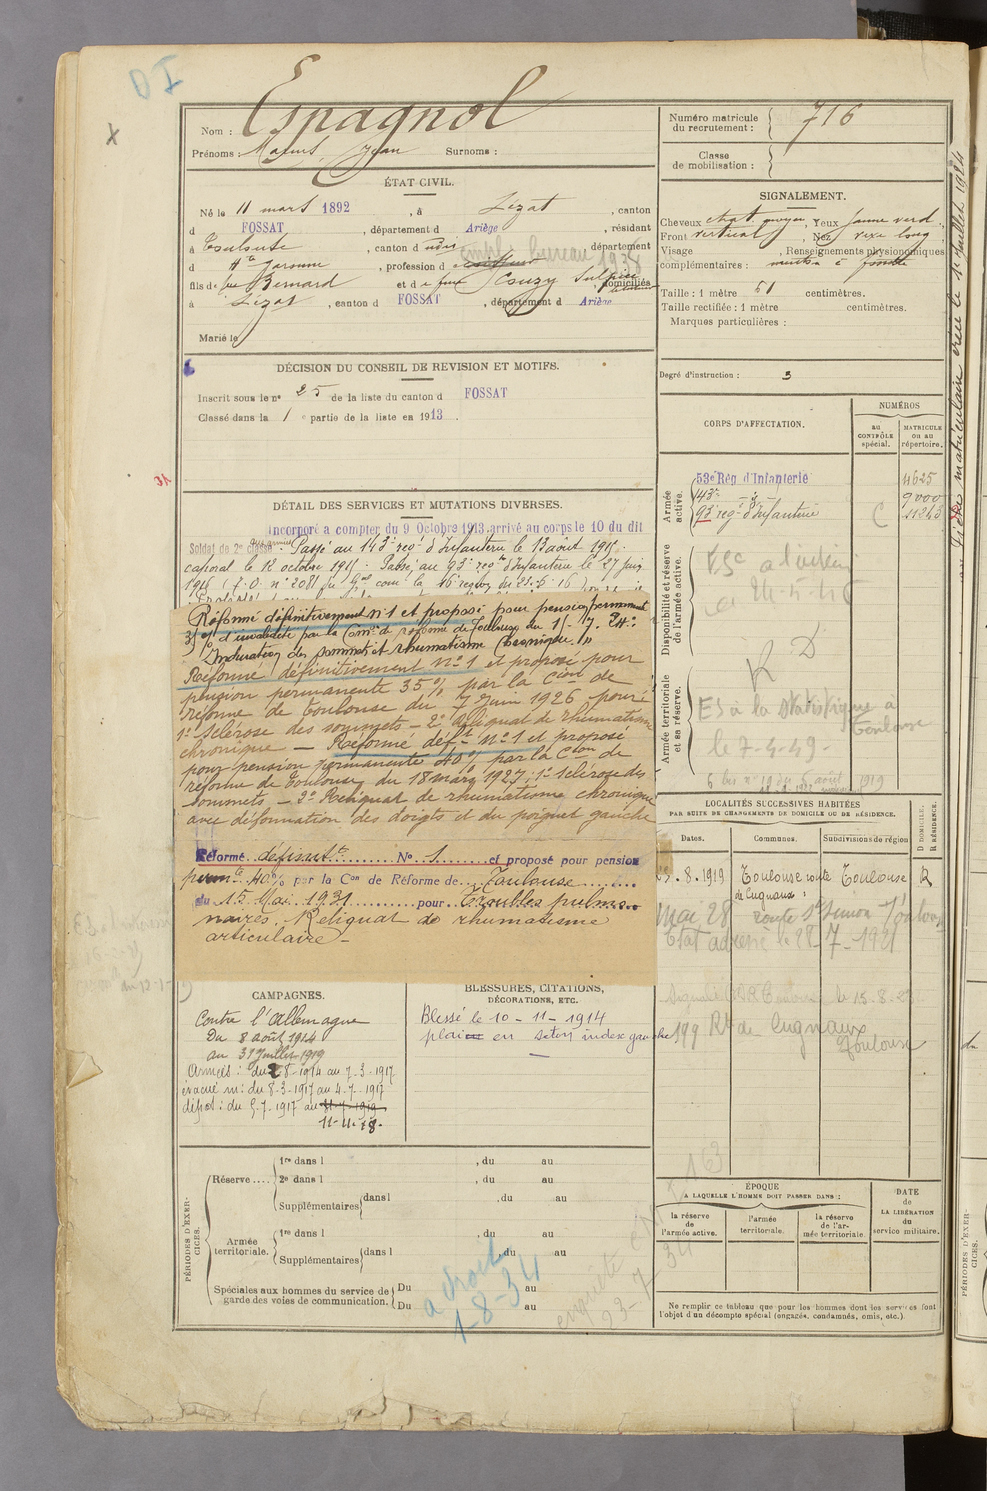 D I
x
Nom : Espagnol
Prénoms : Jean Surnoms :
Numéro matricule du recrutement : 716
Classe de mobilisation :
ÉTAT CIVIL.
Né le 11 mars 1892, à Lézat, canton
d FOSSAT, département d Ariège, résidant
à Toulouse, canton d dudit, département
d Hte Garonne, profession d empl. bureau 1938
fils de feu Bernard et de feue domiciliés
à Lézat, canton d FOSSAT, département d Ariège
Marié le
DÉCISION DU CONSEIL DE REVISION ET MOTIFS.
Inscrit sous le no 25 de la liste du canton d FOSSAT
Classé dans la 1 e partie de la liste en 1913.
SIGNALEMENT.
Cheveux chat. moyen, Yeux jaune verd.,
Front vertical, Nez vexe long
Visage , Renseignements physionomiques
complémentaires :
Taille : 1 mètre 61 centimètres.
Taille rectifiée : 1 mètre centimètres.
Marques particulières :
Degré d'instruction : 3
CORPS D'AFFECTATION.
NUMÉROS
au CONTRÔLE spécial.
MATRICULE ou au répertoire.
Armée active.
53e Rég d'Infanterie 4625
143e d° 9000
93e reg- d'Infanterie C 11243
Disponibilité et réserve de l'armée active.
R D
Armée territoriale et sa réserve.
ES à la Statistique à
Toulouse
le 7-4-49-
DÉTAIL DES SERVICES ET MUTATIONS DIVERSES.
Incorporé a compter du 9 Octobre 1913 arrivé au corps le 10 du dit
Soldat de 2e classe Passé au 143e regt d'Infanterie le 13 août 1915.
caporal le 12 octobre 1915. Passé au 93e regt d'Infanterie le 27 juin
1916 (
Réformé définitivement n°1 et proposé pour pension permanente
d'invalidité par la Comon de réforme de Toulouse du 15-7-24:
Induration des sommets et rhumatisme chronique
Réformé définitivement n°1 et proposé pour
pension permanente 35% par la Cion de
réforme de Toulouse du 7 Juin 1926 pour:
1° Sclérose des sommets - 2° Reliquat de rhumatisme
chronique - Réformé déft n°1 et proposé
pour pension permanente 40% par la Cion de
réforme de Toulouse du 18 mars 1927: 1° Sclérose des
sommets - 2° Reliquat de rhumatisme chronique
avec déformation des doigts et du poignet gauche
Réformé définitt N° 1 et proposé pour pension
permte 40% par la Con de Réforme de Toulouse
du 15 Mai 1931 pour Troubles pulmo-
naires. Reliquat de rhumatisme
articulaire -
LOCALITÉS SUCCESSIVES HABITÉES
PAR SUITE DE CHANGEMENTS DE DOMICILE OU DE RÉSIDENCE.
D DOMICILE. R RÉSIDENCE.
Dates. Communes. Subdivisions de région
8.1919 Toulouse route de Cugnaux : Toulouse R
Mai 28 route St Simon Toulouse
Etat adressé le 28-7-1921
199 Rte de Cugnaux
Toulouse
CAMPAGNES.
Contre l'Allemagne
Du 8 août 1914
au 31 Juillet 1919
Armées : du 2-8-1914 au 7-3-1917
évacué m: du 8-3-1917 au 4-7-1917
dépot : du 5-7-1917 au
11-11-18-
BLESSURES, CITATIONS, DÉCORATIONS, ETC.
Blessé le 10-11-1914
plaie en séton index gauche
PÉRIODES D'EXERCICES.
Réserve....
1re dans l , du au
2e dans l , du au
Supplémentaires dans l , du au
Armée territoriale.
1re dans l , du au
Supplémentaires dans l , du au
Spéciales aux hommes du service de garde des voies de communication.
Du au
Du au
1-8-34
enquête
23-7-34
ÉPOQUE
A LAQUELLE L'HOMME DOIT PASSER DANS :
la réserve de l'armée active.
l'armée territoriale.
la réserve de l'armée territoriale.
DATE DE LA LIBÉRATION du service militaire.
Ne remplir ce tableau que pour les hommes dont les services font
l'objet d'un décompte spécial (engagés, condamnés, omis, etc.).
PÉRIODES D'EXERCICES.